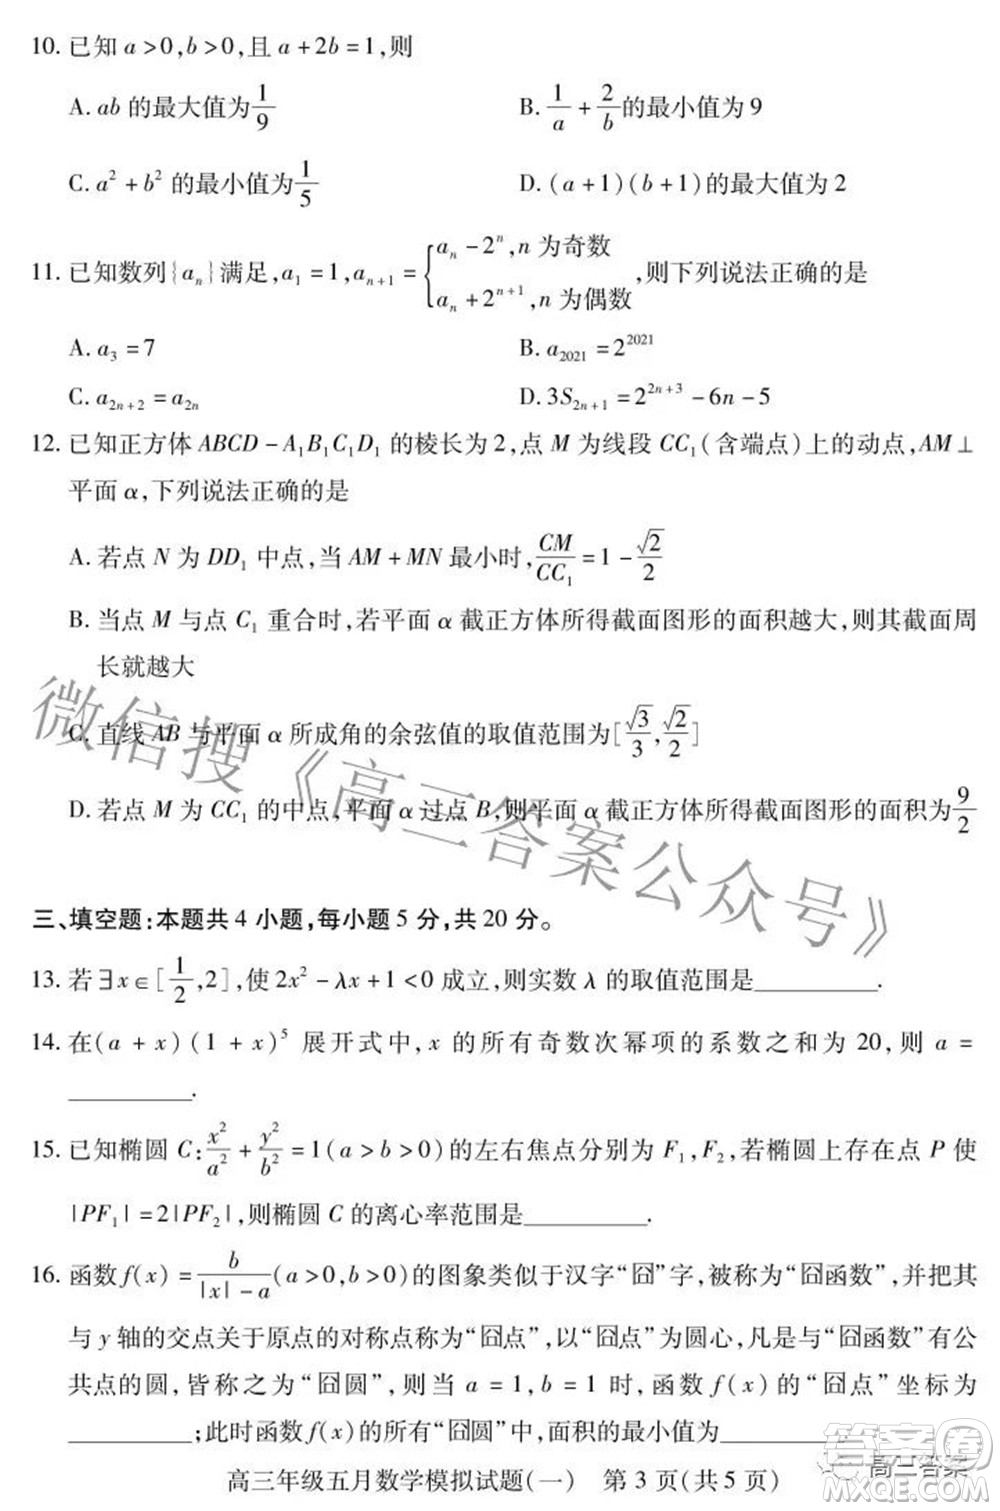 10. 已知 a>0,b>0,且 a+2b=1,则
A. ab 的最大值为 1/9 B. 1/a + 2/b 的最小值为 9
C. a²+b² 的最小值为 1/5 D. (a+1)(b+1)的最大值为 2
11. 已知数列{aₙ}满足,a₁=1,aₙ₊₁={aₙ-2ⁿ,n 为奇数
aₙ+2ⁿ⁺¹,n 为偶数 ,则下列说法正确的是
A. a₃=7 B. a₂₀₂₁=2²⁰²¹
C. a₂ₙ₊₂=a₂ₙ D. 3S₂ₙ₊₁=2²ⁿ⁺³-6n-5
12. 已知正方体 ABCD-A₁B₁C₁D₁ 的棱长为 2,点 M 为线段 CC₁(含端点)上的动点,AM⊥
平面 α,下列说法正确的是
A. 若点 N 为 DD₁ 中点,当 AM+MN 最小时,CM/CC₁=1-√2/2
B. 当点 M 与点 C₁ 重合时,若平面 α 截正方体所得截面图形的面积越大,则其截面周
长就越大
C. 直线 AB 与平面 α 所成角的余弦值的取值范围为[√3/3,√2/2]
D. 若点 M 为 CC₁ 的中点,平面 α 过点 B,则平面 α 截正方体所得截面图形的面积为 9/2
微信搜《高三答案公众号》
三、填空题:本题共 4 小题,每小题 5 分,共 20 分。
13. 若∃x∈[1/2,2],使 2x²-λx+1<0 成立,则实数 λ 的取值范围是________.
14. 在(a+x)(1+x)⁵ 展开式中,x 的所有奇数次幂项的系数之和为 20,则 a=
________.
15. 已知椭圆 C:x²/a²+y²/b²=1(a>b>0)的左右焦点分别为 F₁,F₂,若椭圆上存在点 P 使
|PF₁|=2|PF₂|,则椭圆 C 的离心率范围是________.
16. 函数 f(x)=b/(|x|-a)(a>0,b>0)的图象类似于汉字“囧”字,被称为“囧函数”,并把其
与 y 轴的交点关于原点的对称点称为“囧点”,以“囧点”为圆心,凡是与“囧函数”有公
共点的圆,皆称之为“囧圆”,则当 a=1,b=1 时,函数 f(x)的“囧点”坐标为
________;此时函数 f(x)的所有“囧圆”中,面积的最小值为________.
高三年级五月数学模拟试题(一) 第 3 页(共 5 页)
高三答案
答案圈